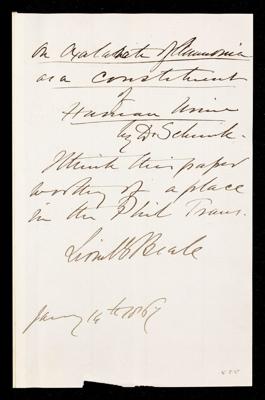 On Oxalurate of Ammonia
as a constituent
of
Human Urine
by Dr Schunk.
I think this paper
worthy of a place
in the Phil Trans.
Lionel S Beale
Jany 14th 1867